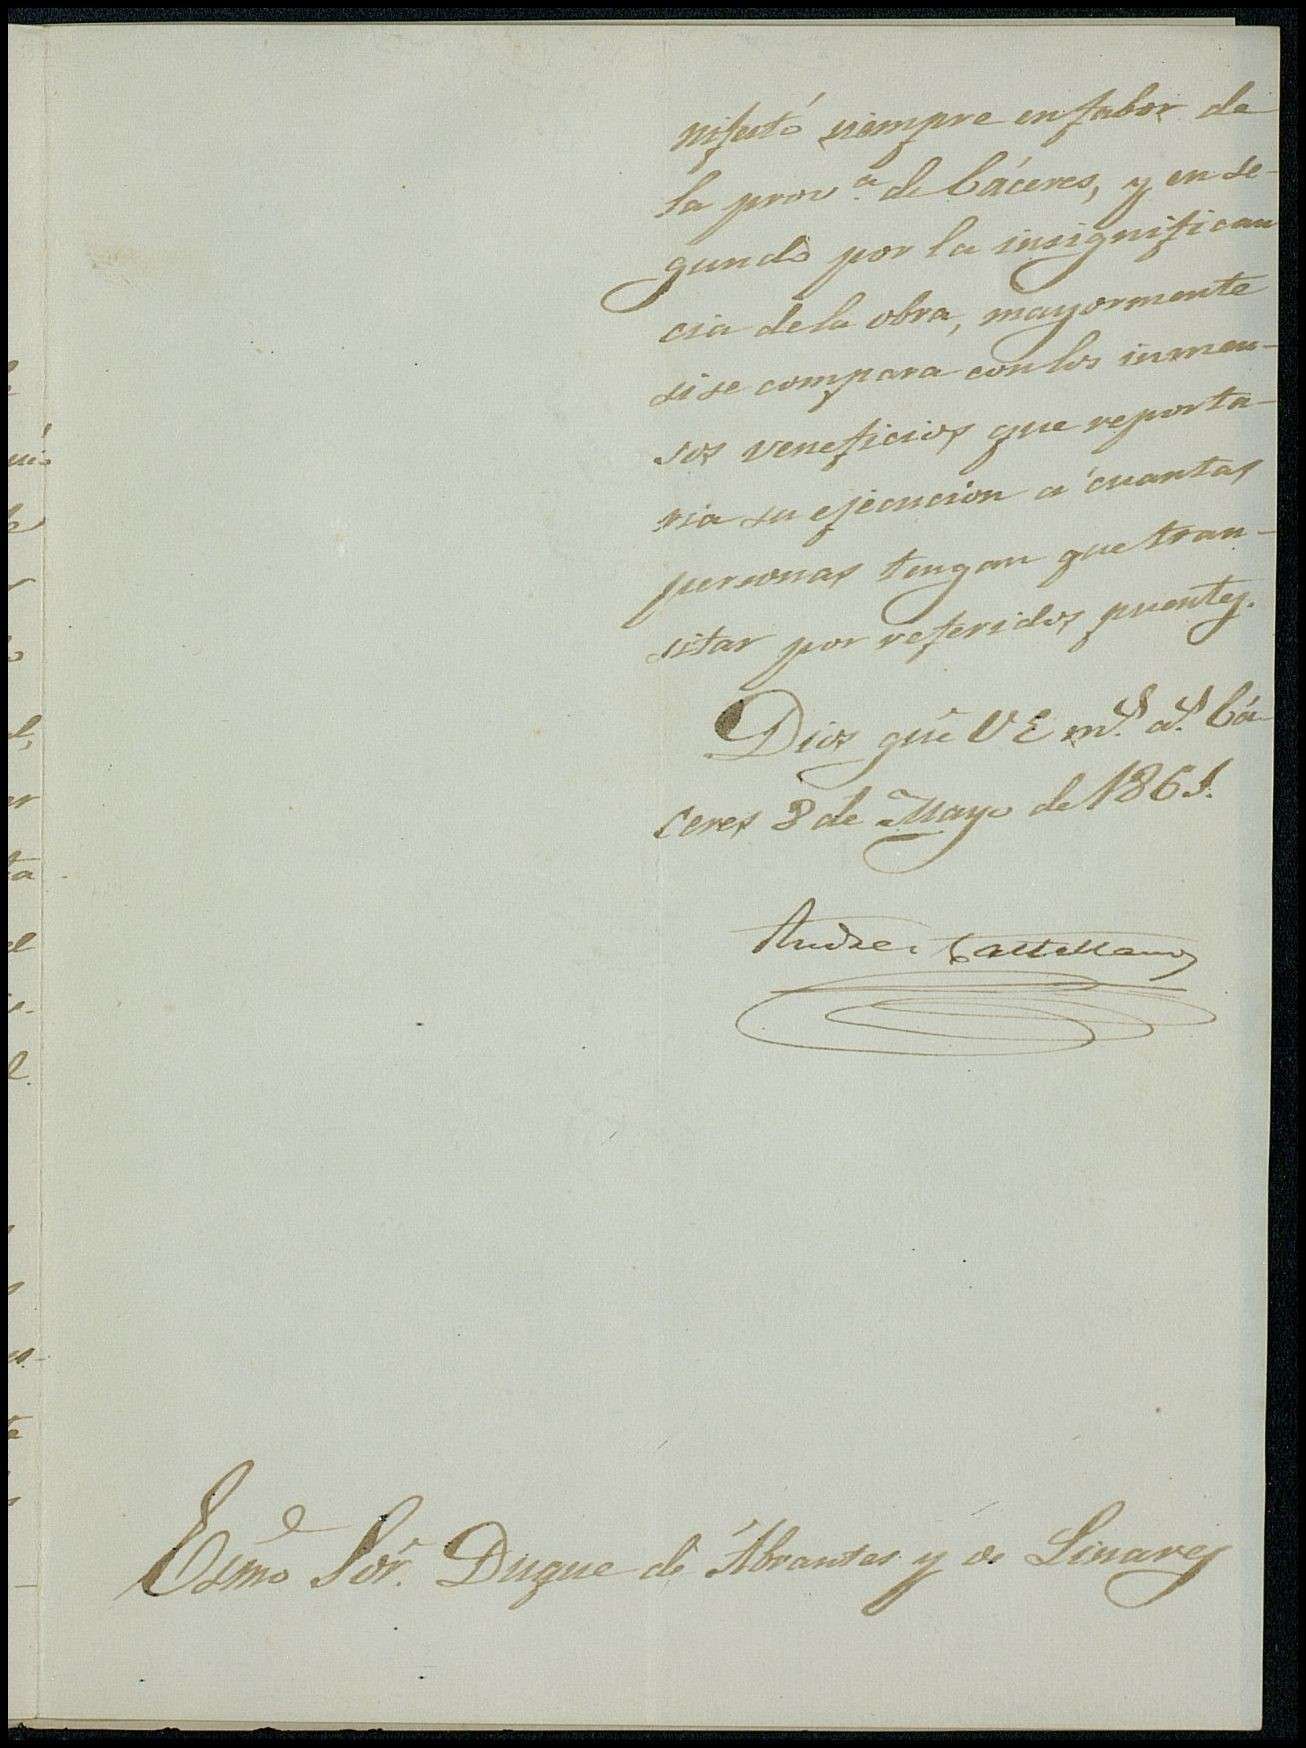 nifestó siempre en fabor de
la prov.ª de Cáceres, y en se-
gundo por la insignifican
cia de la obra, mayormente
si se compara con los inmen-
sos veneficios que reporta-
ria su ejecucion a cuantas
personas tengan que tran-
sitar por referidos puentes.
Dios gue VE m.s a.s Cá-
ceres 8 de Mayo de 1861.
Andres Castellano
Esmo Sor. Duque de Abrantes y de Linares